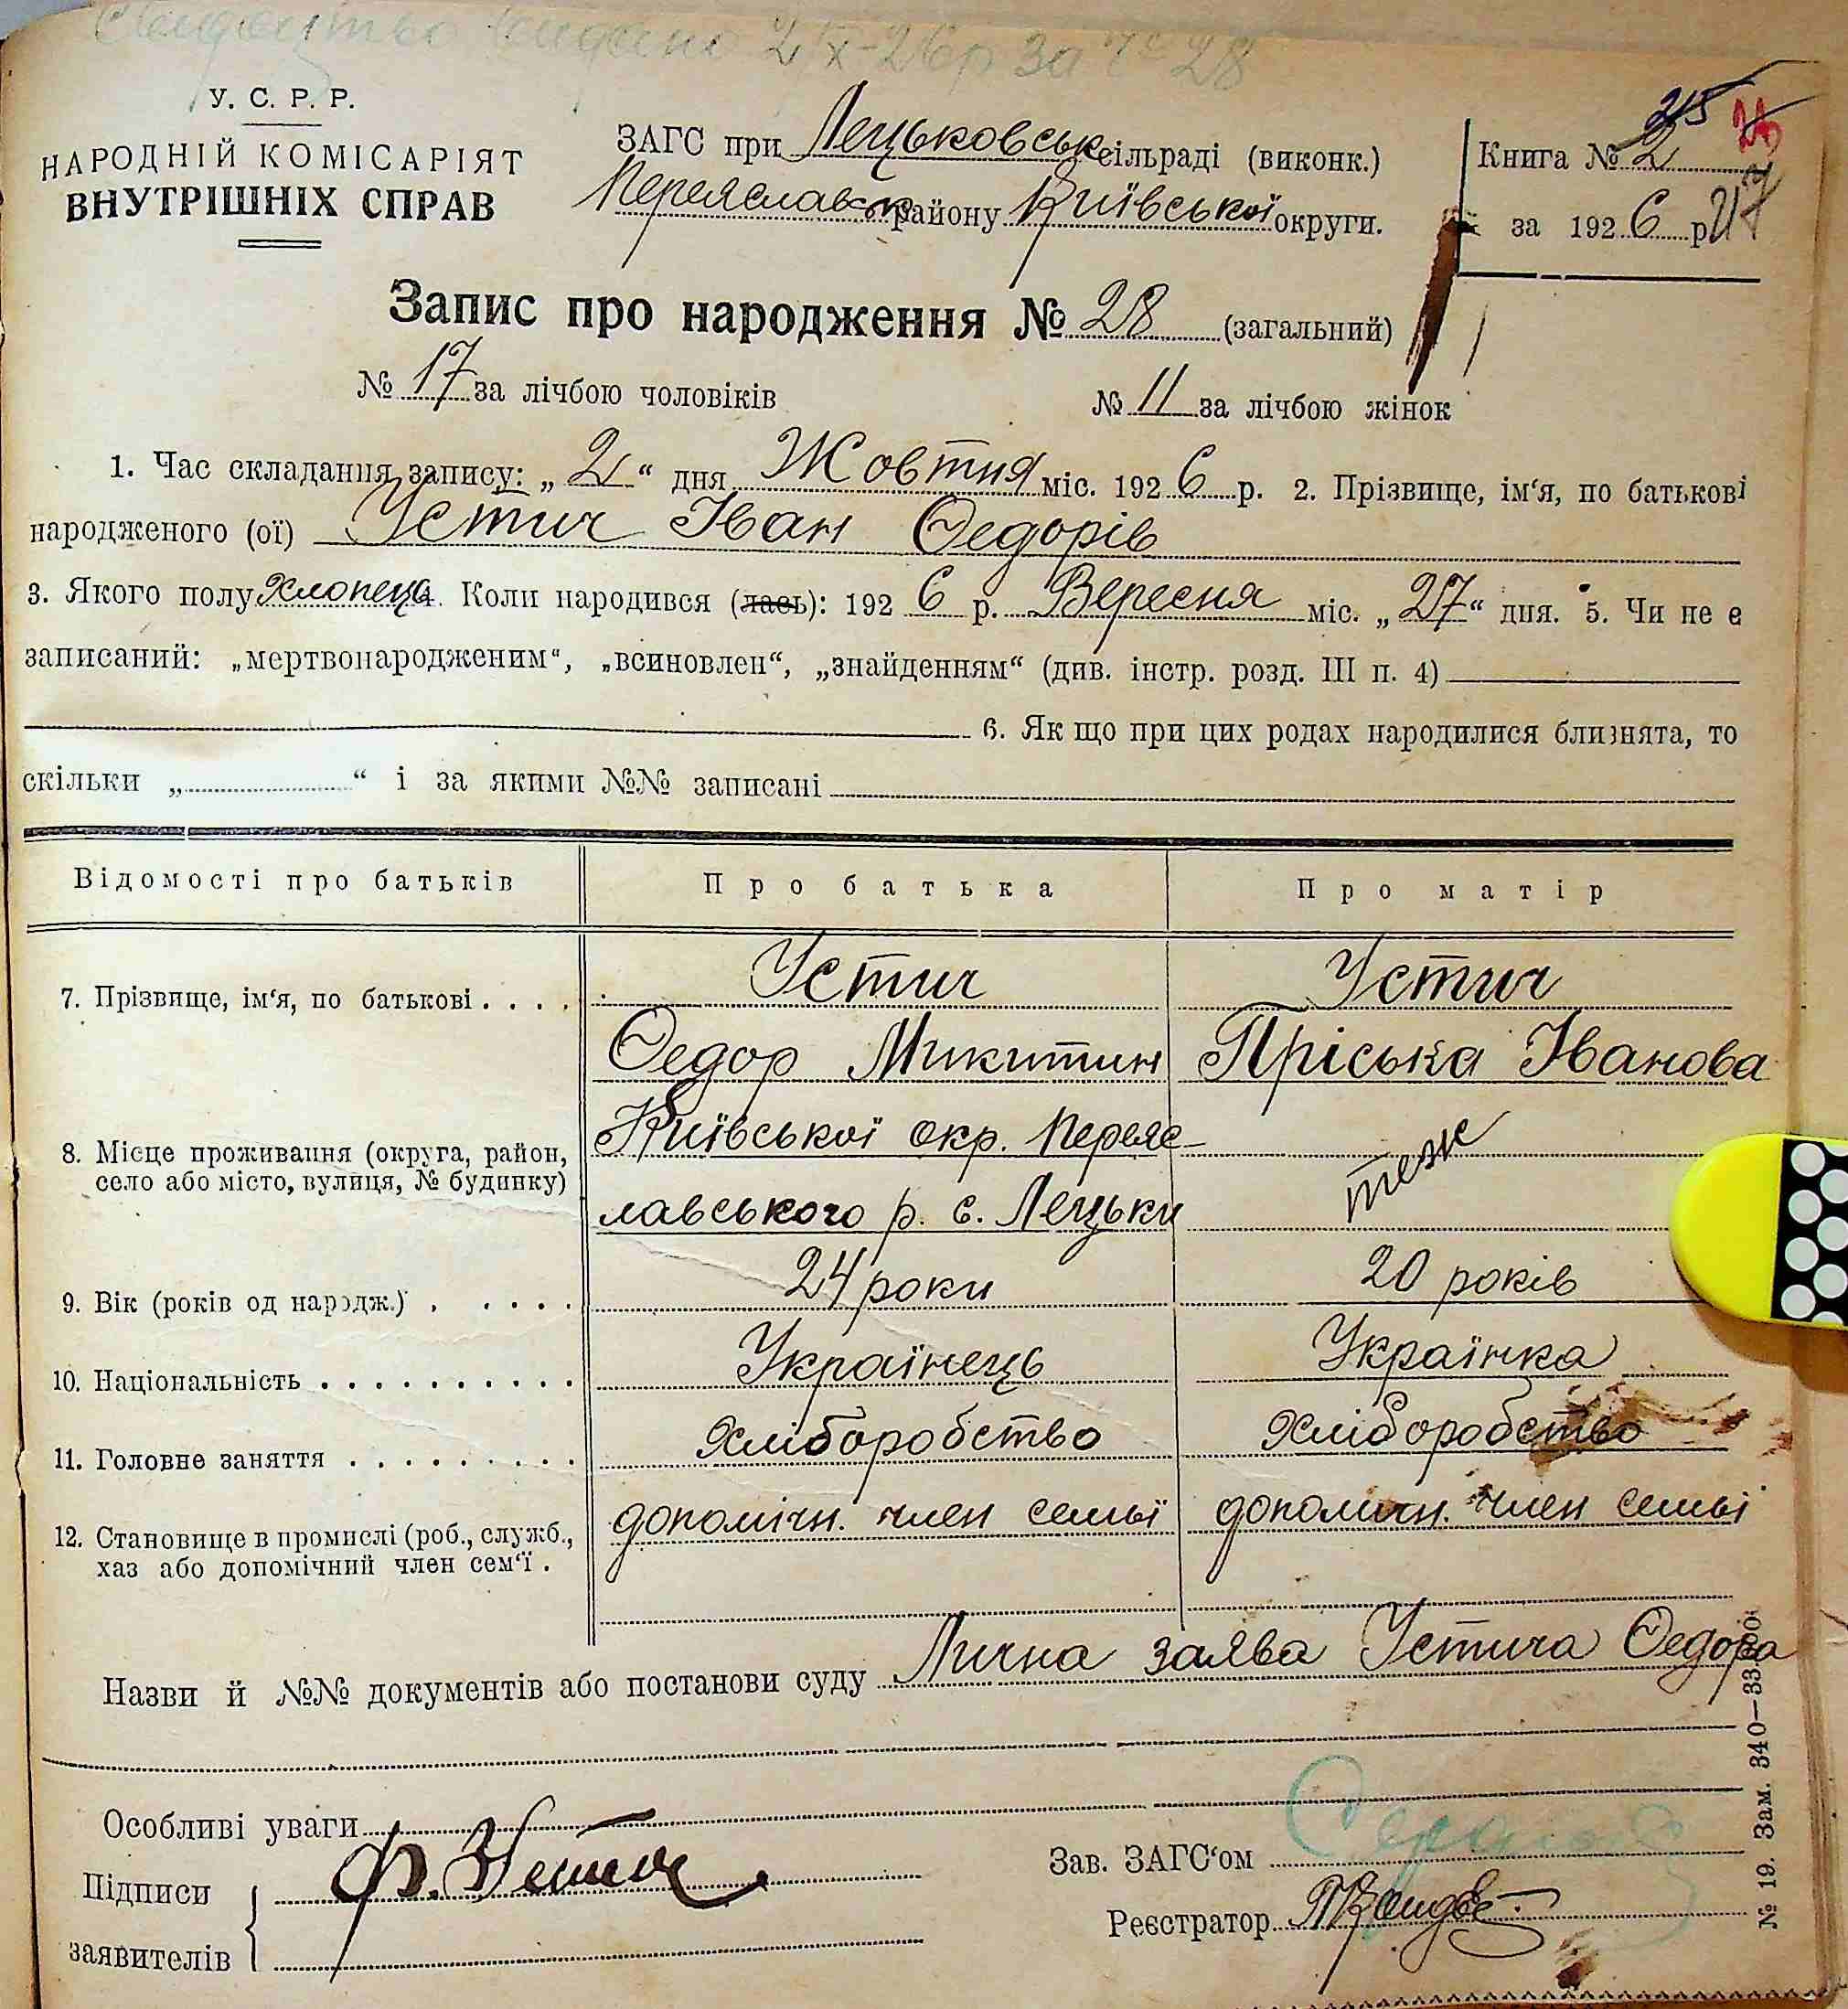 Свидоцтво видано 2/X-26р за № 28
У. С. Р. Р.
НАРОДНІЙ КОМІСАРІЯТ
ВНУТРІШНІХ СПРАВ
ЗАГС при Лецьковськ сільраді (виконк.)
Переяславськ району Київської округи.
215
Книга № 2
за 1926 р.
Запис про народження № 28 (загальний)
№ 17 за лічбою чоловіків № 11 за лічбою жінок
1. Час складання запису: „2“ дня Жовтня міс. 1926 р. 2. Прізвище, ім‘я, по батькові
народженого (ої) Устич Іван Ѳедорів
3. Якого полу хлопець. Коли народився (лась): 1926 р. Вересня міс. „27“ дня. 5. Чи не є
записаний: „мертвонародженим“, „всиновлен“, „знайденням“ (див. інстр. розд. III п. 4)
6. Як що при цих родах народилися близнята, то
скільки „ “ і за якими №№ записані
Відомості про батьків Про батька Про матір
7. Прізвище, ім‘я, по батькові . . . . Устич Устич
Ѳедор Микитин Пріська Іванова
8. Місце проживання (округа, район, Київської окр. Переяс- теж
село або місто, вулиця, № будинку) лавського р. с. Лецьки
9. Вік (років од народж.) . . . . . 24 роки 20 років
10. Національність . . . . . . . . . . Українець Українка
11. Головне заняття . . . . . . . . . Хліборобство Хліборобство
12. Становище в промислі (роб., служб., допомічн. член семьї допомічн. член семьї
хаз або допомічний член сем‘ї .
Назви й №№ документів або постанови суду Лична заява Устича Ѳедора
Особливі уваги
Підписи Ф. Устич
заявителів
Зав. ЗАГС‘ом
Реєстратор
№ 19. Зам. 340—33.000